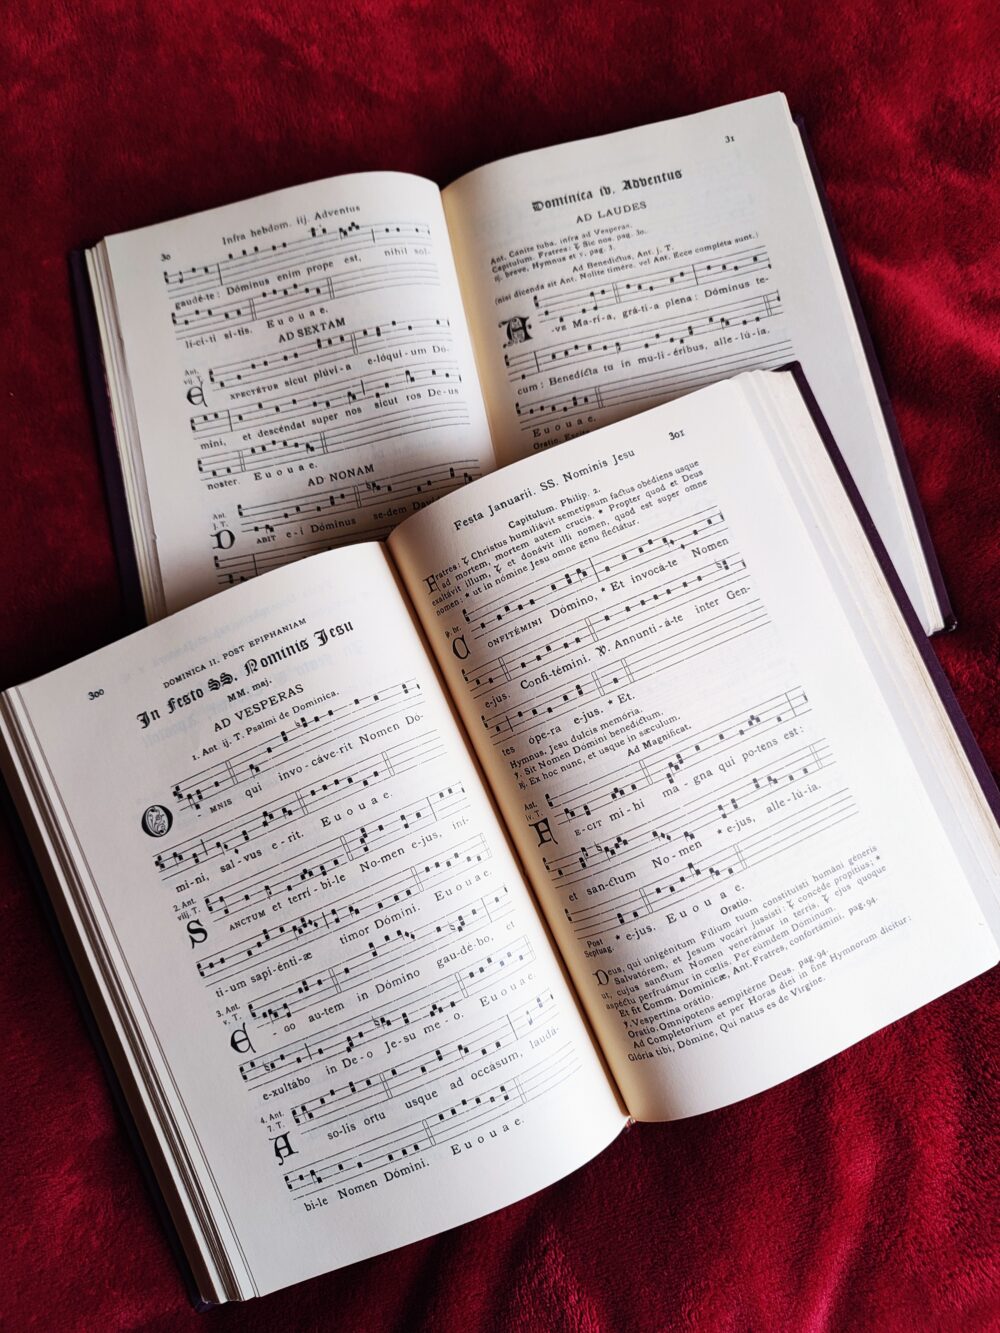 30
Infra hebdom. iij. Adventus
gaudé-te: Dóminus enim prope est, nihil sol-
li-ci-ti si-tis. E u o u a e.
AD SEXTAM
Ant.
vij. T.
EXPECTÁTUR sicut plúvi-a e-lóqui-um Dó-
mini, et descéndat super nos sicut ros De-us
noster. E u o u a e.
AD NONAM
Ant.
j. T.
DABIT e-i Dóminus sedem Daví
31
Dominica iv. Adventus
AD LAUDES
Ant. Cánite tuba, infra ad Vesperas.
Capitulum. Fratres: Sic nos. pag. 30.
℟. breve, Hymnus et ℣. pag. 3.
Ad Benedíctus, Ant. j. T.
(nisi dicenda sit Ant. Nolíte timére. vel Ant. Ecce compléta sunt.)
A-VE Marí-a, grá-ti-a plena: Dóminus te-
cum: Benedícta tu in mu-li-éribus, alle-lú-ia.
E u o u a e.
300
DOMINICA II. POST EPIPHANIAM
In Festo SS. Nominis Jesu
MM. maj.
AD VESPERAS
1. Ant. ij. T. Psalmi de Dominica.
O-MNIS qui invo-cáve-rit Nomen Dó-
mi-ni, sal-vus e-rit. E u o u a e.
2. Ant.
viij. T.
SANCTUM et terrí-bi-le No-men e-jus, iní-
ti-um sapi-énti-æ timor Dómini. E u o u a e.
3. Ant.
v. T.
E-GO au-tem in Dómino gau-dé-bo, et
e-xultábo in De-o Je-su me-o. E u o u a e.
4. Ant.
7. T.
A so-lis ortu usque ad occásum, laudá-
bi-le Nomen Dómini. E u o u a e.
301
Festa Januarii. SS. Nominis Jesu
Capitulum. Philip. 2.
Fratres: Christus humiliávit semetípsum factus obédiens usque
ad mortem, mortem autem crucis. * Propter quod et Deus
exaltávit illum, et donávit illi nomen, quod est super omne
nomen: * ut in nómine Jesu omne genu flectátur.
℟. br.
CONFITÉMINI Dómino, * Et invocá-te Nomen
e-jus. Confi-témini. ℣. Annunti-á-te inter Gen-
tes ópe-ra e-jus. * Et.
Hymnus, Jesu dulcis memória.
℣. Sit Nomen Dómini benedíctum.
℟. Ex hoc nunc, et usque in sæculum.
Ad Magnificat.
Ant.
iv. T.
FE-CIT mi-hi ma-gna qui pot-ens est:
et san-ctum No-men * e-jus, alle-lú-ia.
Post
Septuag. * e-jus. E u o u a e.
Oratio.
Deus, qui unigénitum Fílium tuum constituísti humáni géneris
Salvatórem, et Jesum vocári jussísti: concéde propítius; *
ut, cujus sanctum Nomen venerámur in terris, ejus quoque
aspéctu perfruámur in cœlis. Per eúmdem Dóminum.
Et fit Comm. Dominicæ, Ant. Fratres, confortámini. pag. 94.
℣. Vespertína orátio.
Oratio. Omnípotens sempitérne Deus. pag. 94.
Ad Completorium et per Horas diei in fine Hymnorum dicitur:
Glória tibi, Dómine, Qui natus es de Vírgine.